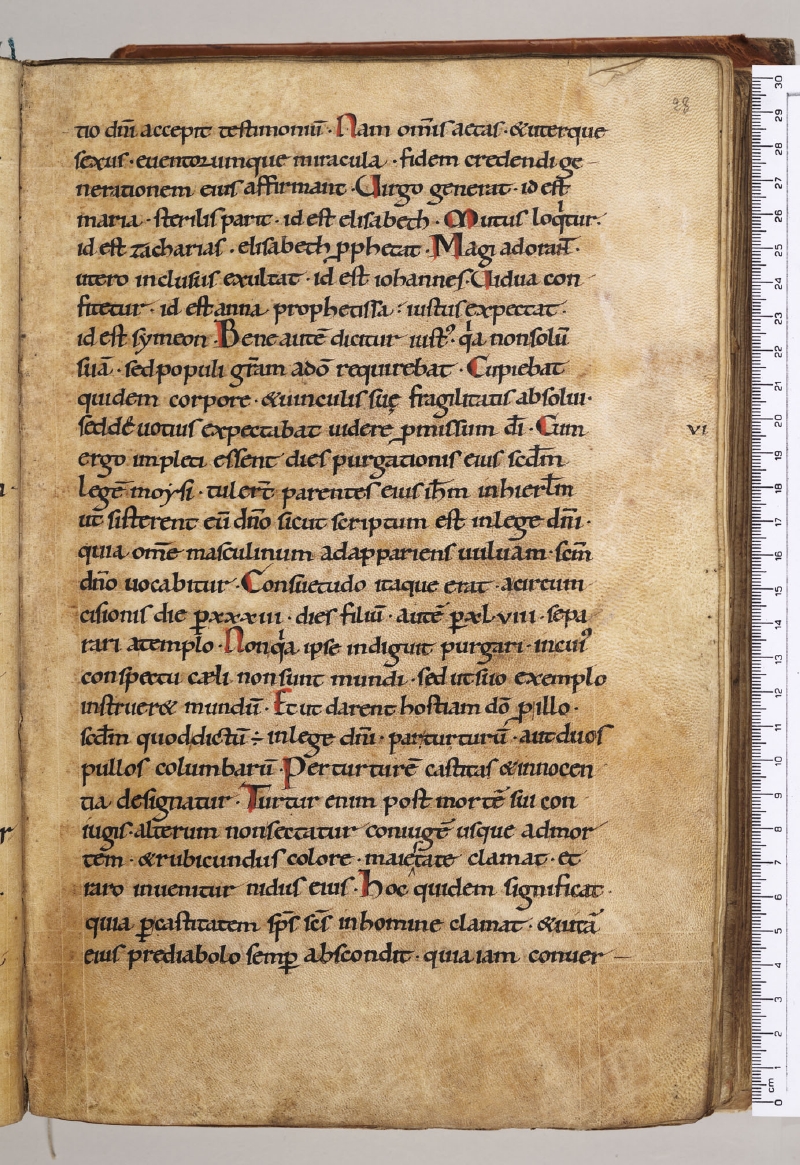 28
tio dn̄i accepit testimoniū · Nam om̄is aetas · & uterque
sexus · euentorumque miracula · fidem credendi ge-
nerationem eius affirmant · Uirgo generat · id est
maria · sterilis parit · id est elisabeth · Mutus loq̇tur ·
id est zacharias · elisabeth ꝓphetat · Magi adorant̄ ·
utero inclusus exultat · id est iohannes · Uidua con
fitetur · id est anna prophetissa : iustus expectat ·
id est symeon · Bene autē dicitur iustꝰ · q̇a non solū
suā · sed populi gr̄am a dn̄o requirebat · Cupiebat
quidem corpore · & uinculis suę fragilitatis absolui ·
sed deuotius expectabat uidere ꝓmissum dī · Cum
VI
ergo impleti essent dies purgationis eius scdm̄
legē moysi · tuler̄t parentes eius ih̄m in hierl̄m
ut sisterent eū dn̄o sicut scriptum est in lege dn̄i ·
quia om̄e masculinum adappariens uuluam · scm̄
dn̄o uocabitur · Consuetudo itaque erat · a circum
cisionis die ꝑ xxxiii · dies filiū · autē ꝑ xl viii · sepa
rari a templo · Non q̇a ipse indiguit purgari · in cuiꝰ
conspectu cæli non sunt mundi · sed ut suo exemplo
instruer& mundū · Et ut darent hostiam dō ꝓ illo ·
scdm̄ quod dictū ÷ in lege dn̄i · par turturū · aut duos
pullos columbarū · Per turturē castitas & innocen
tia designatur · Turtur enim post mortē sui con
iugis · alterum non sectatur coniugē usque ad mor
tem · & rubicundus colore · maiestate clamat · et
raro inuenitur nidus eius · Hoc quidem significat ·
quia ꝑ castitatem sp̄s sc̄s in homine clamat · & uitā
eius pre diabolo semꝑ abscondit · quia iam conuer-